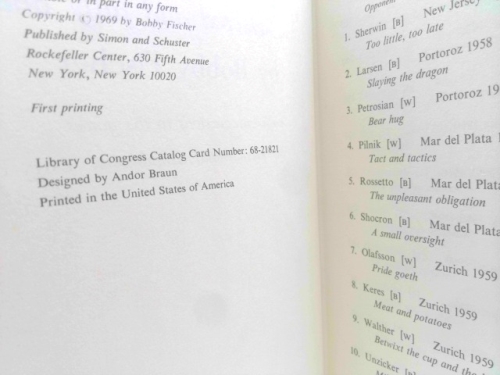 or in part in any form
Copyright © 1969 by Bobby Fischer
Published by Simon and Schuster
Rockefeller Center, 630 Fifth Avenue
New York, New York 10020
First printing
Library of Congress Catalog Card Number: 68-21821
Designed by Andor Braun
Printed in the United States of America
Opponent
1. Sherwin [B] New Jersey
Too little, too late
2. Larsen [B] Portoroz 1958
Slaying the dragon
3. Petrosian [W] Portoroz
Bear hug
4. Pilnik [W] Mar del Plata
Tact and tactics
5. Rossetto [B] Mar del Plata
The unpleasant obligation
6. Shocron [B] Mar del Plata
A small oversight
7. Olafsson [W] Zurich 1959
Pride goeth
8. Keres [B] Zurich 1959
Meat and potatoes
9. Walther [W] Zurich 1959
Betwixt the cup and the
10. Unzicker [B]